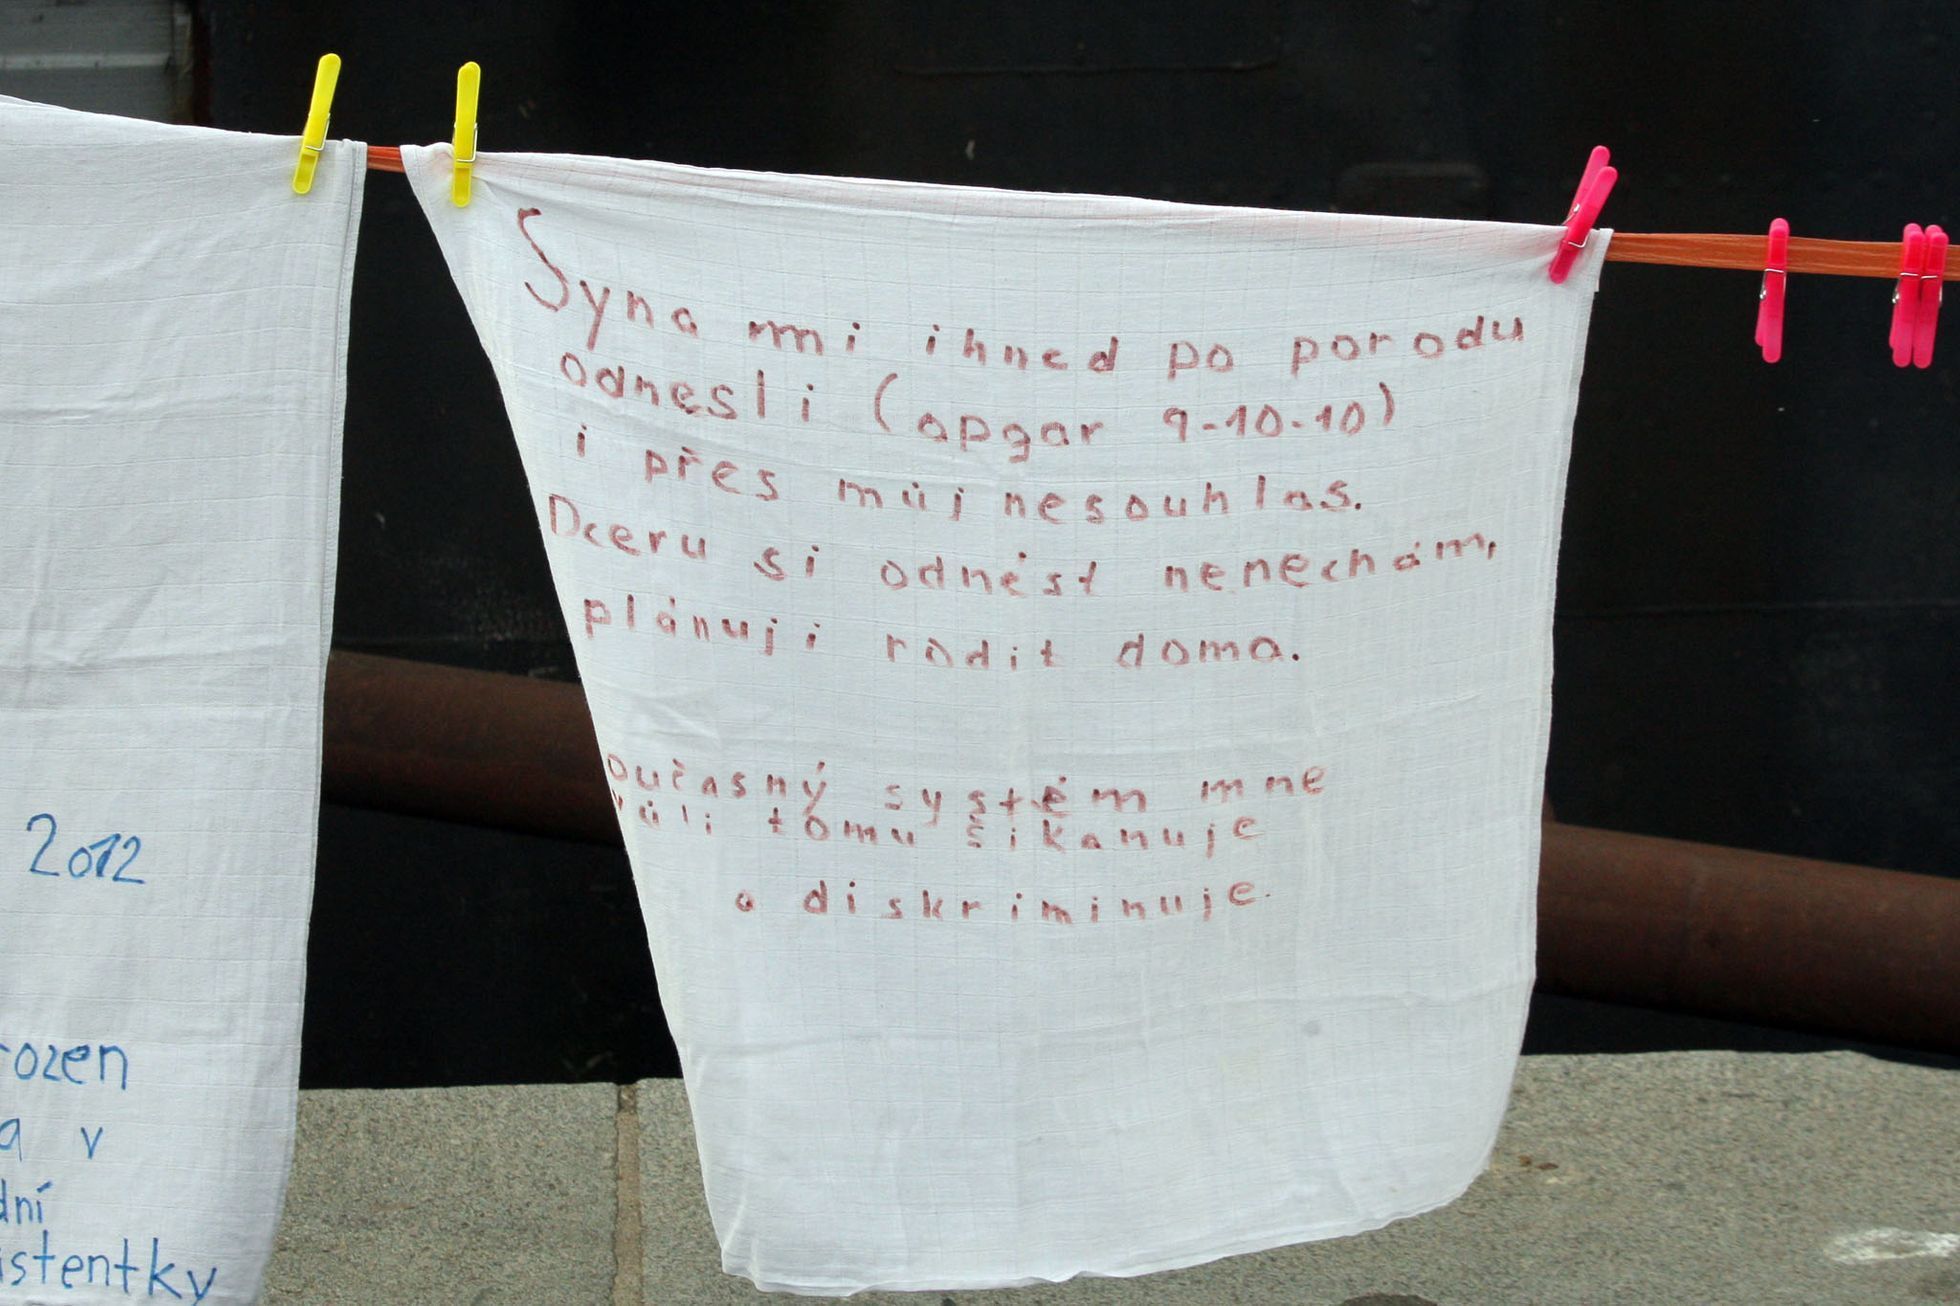 2012
rozen
a v
dní
istentky
Syna mi ihned po porodu
odnesli (apgar 9-10-10)
i přes můj nesouhlas.
Dceru si odnést nenechám,
plánuji rodit doma.
oučasný systém mne
vůli tomu šikanuje
a diskriminuje.